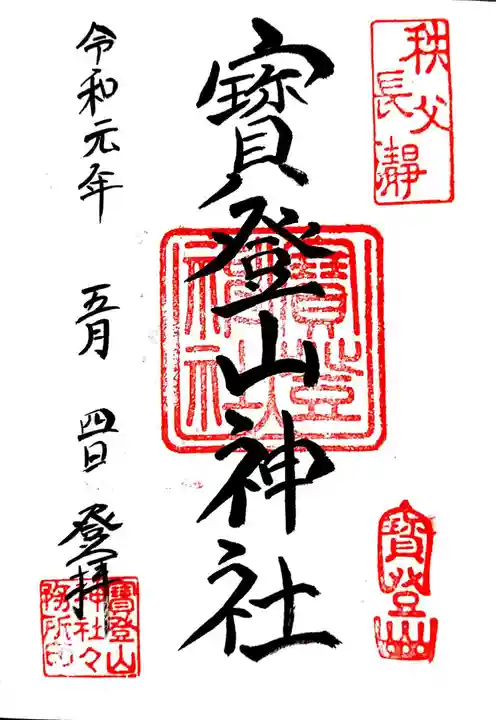 秩父
長瀞
寳登山神社
寳登山
令和元年 五月 四日 登拝
寳登山
神社々
務所印